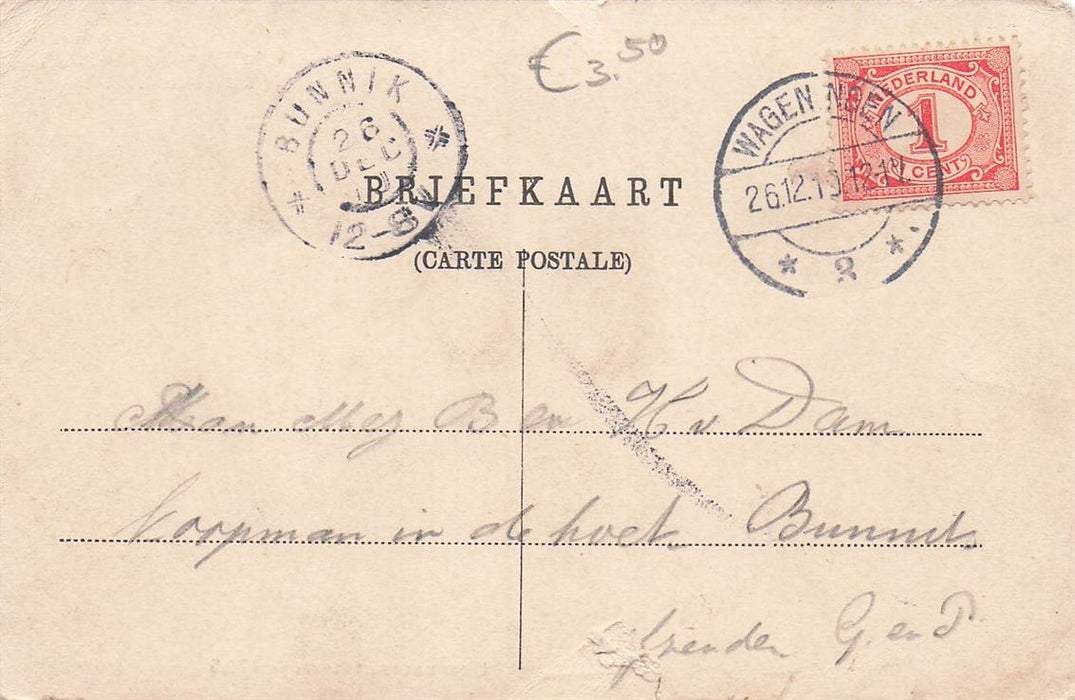 € 3.50
BUNNIK
26
DEC
10
12-8V
NEDERLAND
1
CENT
WAGENINGEN
26.12.10.12-1V
* 2 *
BRIEFKAART
(CARTE POSTALE)
Aan Mej B en H v Dam
Koopman in de hoek Bunnik
Afzender G. en P.